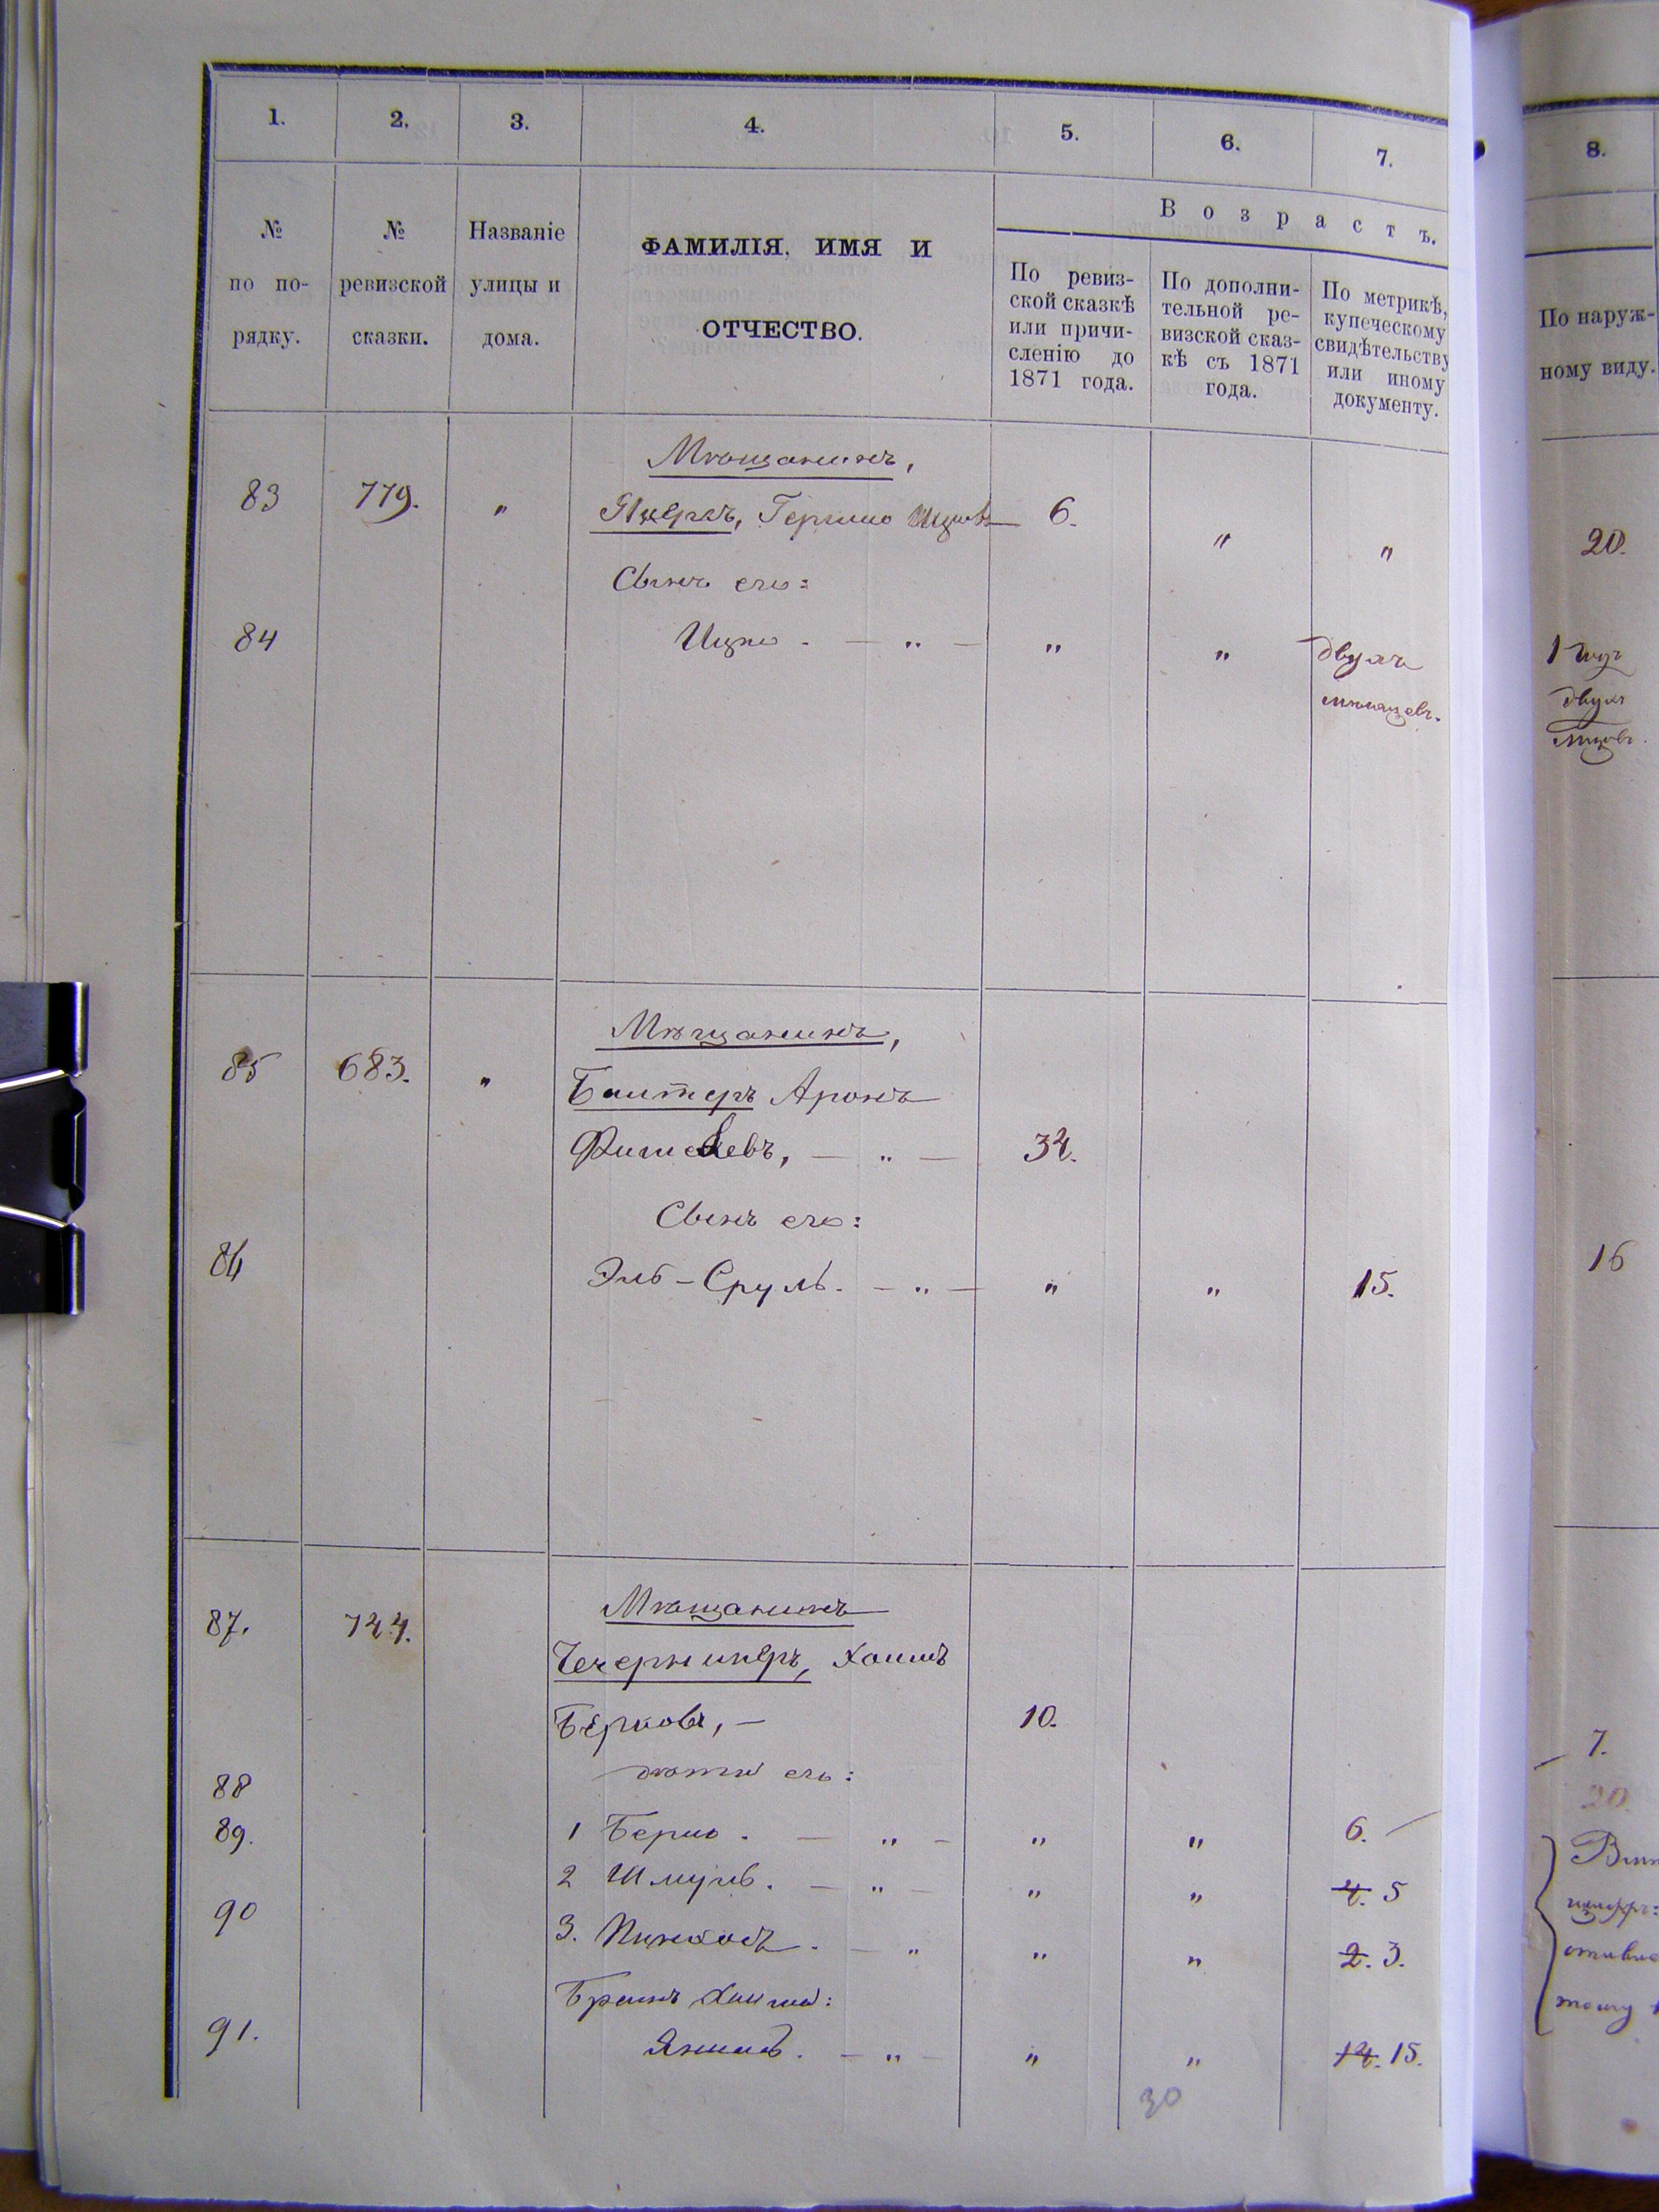 1. 2. 3. 4. 5. 6. 7.
8.
№ по порядку.
№ ревизской сказки.
Названіе улицы и дома.
ФАМИЛІЯ, ИМЯ И
ОТЧЕСТВО.
Возрастъ.
По ревиз-
ской сказкѣ
или причи-
сленію до
1871 года.
По дополни-
тельной ре-
визской сказ-
кѣ съ 1871
года.
По метрикѣ,
купеческому
свидѣтельству
или иному
документу.
По наруж-
ному виду.
Мѣщанинъ,
83 779. " Гершко Ицковъ 6. " " 20.
Сынъ его:
84 Ицко. — " — " " двухъ 1 годъ
мѣсяцевъ. двухъ
Мѣщанинъ,
85 683. "
Балтеръ Аронъ
Фишелевъ, — " — 34.
Сынъ его:
86 Эль-Сруль. — " — " " 15. 16
Мѣщанинъ
87. 724.
Чечерникеръ, Хаимъ
Берковъ, — 10. 7.
дѣти его: 20.
88
89. 1 Берко. — " — " " 6.
2 Шмуль. — " — " " 4. 5
90 3. Пинхосъ. — " " " 2. 3.
Братъ Хаима:
91. Янкель. — " — " " 14. 15.
30